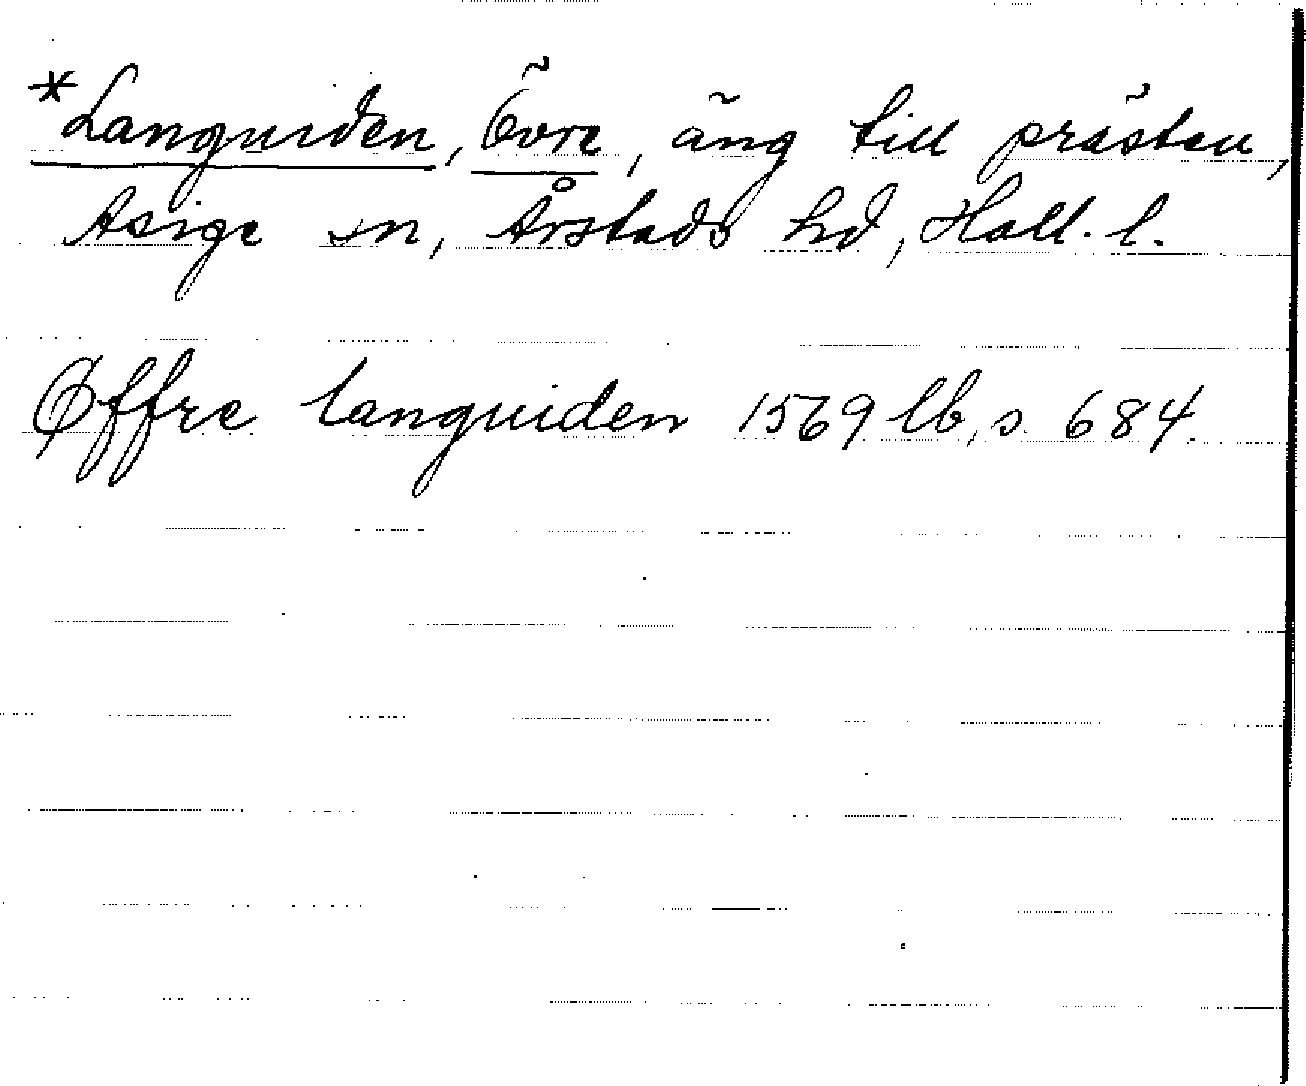 *Languiden, Övre, äng till prästen,
Asige sn, Årstads hd, Hall. l.
Øffre languiden 1569 lb, s. 684.